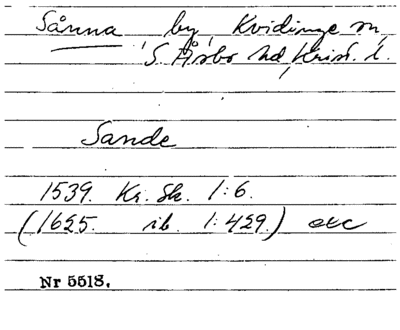 Sånna, by, Kvidinge sn,
S. Åsbo hd, Krist. l.
Sande
1539. Kr. Sk. 1:6.
(1625. ib. 1:429.) etc
Nr 5518.